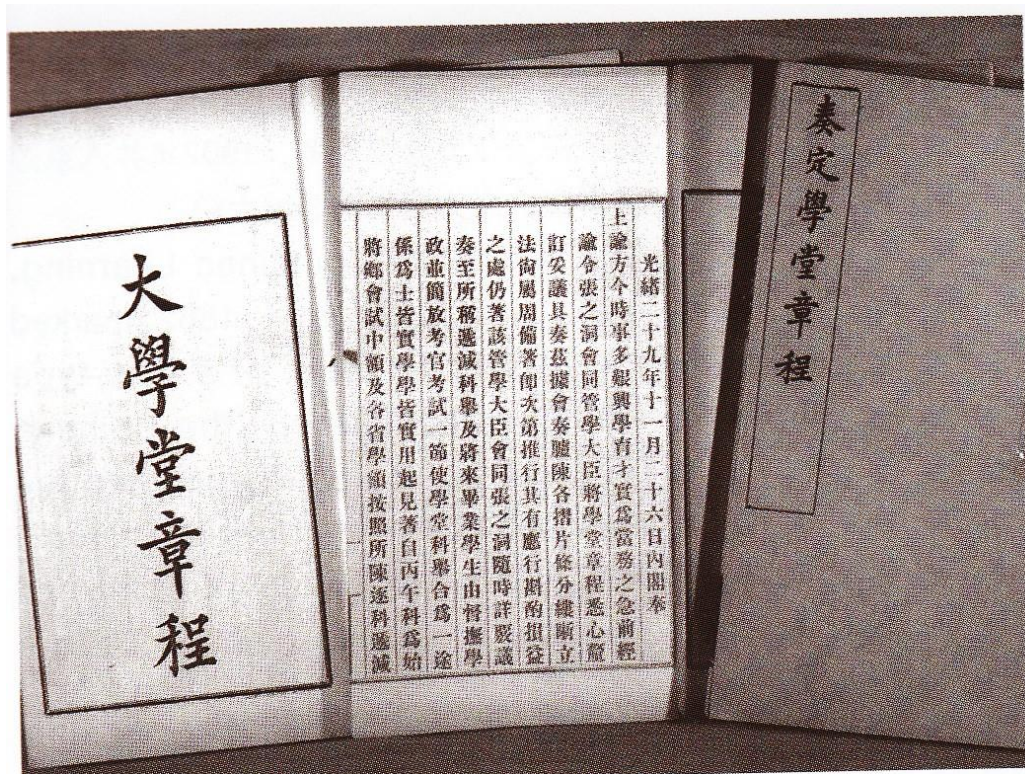 奏定學堂章程
光緒二十九年十一月二十六日內閣奉
上諭方今時事多艱興學育才實爲當務之急前經
諭令張之洞會同管學大臣將學堂章程悉心釐
訂妥議具奏茲據會奏臚陳各摺片條分縷晰立
法尚屬周備著卽次第推行其有應行斟酌損益
之處仍著該管學大臣會同張之洞隨時詳覈議
奏至所稱遞減科舉及將來畢業學生由督撫學
政並簡放考官考試一節使學堂科舉合爲一途
係爲士皆實學學皆實用起見著自丙午科爲始
將鄉會試中額及各省學額按照所陳逐科遞減
大學堂章程